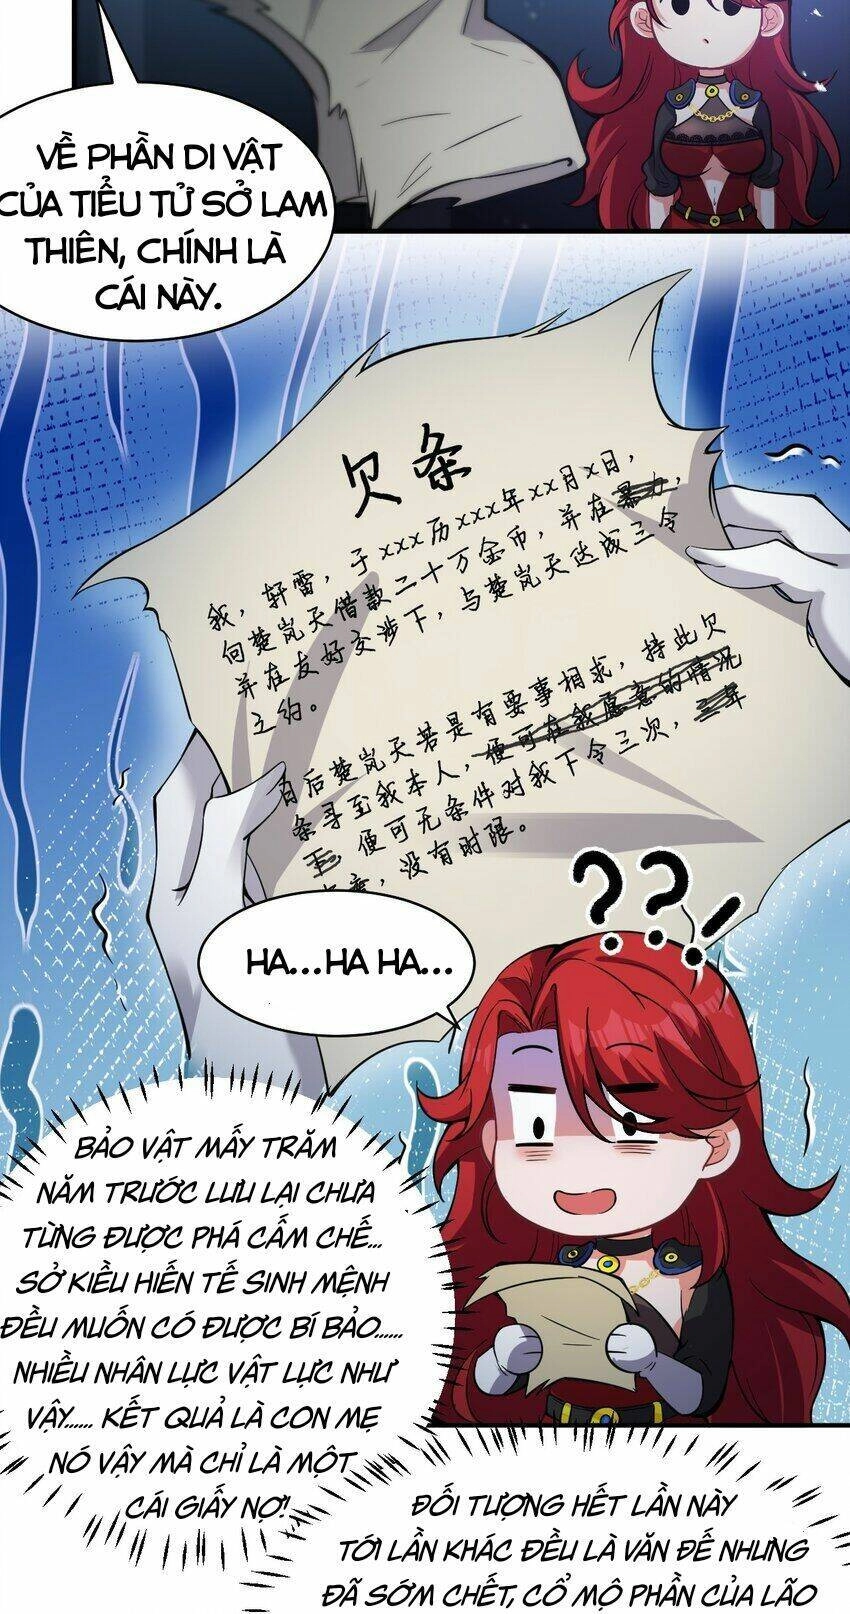 VỀ PHẦN DI VẬT
CỦA TIỂU TỬ SỞ LAM
THIÊN, CHÍNH LÀ
CÁI NÀY.
欠条
我，轩雷，于xxx历xxx年xx月x日，
向楚岚天借款二十万金币，并在暴力，
并在友好交涉下，与楚岚天达成三令
之约。
日后楚岚天若是有要事相求，持此欠
条寻至我本人，便可在我愿意的情况
便可无条件对我下令三次，三年
没有时限。
??!
HA...HA HA...
BẢO VẬT MẤY TRĂM
NĂM TRƯỚC LƯU LẠI CHƯA
TỪNG ĐƯỢC PHÁ CẤM CHẾ...
SỞ KIỀU HIẾN TẾ SINH MỆNH
ĐỀU MUỐN CÓ ĐƯỢC BÍ BẢO......
NHIỀU NHÂN LỰC VẬT LỰC NHƯ
VẬY...... KẾT QUẢ LÀ CON MẸ
NÓ VẬY MÀ CHỈ LÀ MỘT
CÁI GIẤY NỢ!
ĐỐI TƯỢNG HẾT LẦN NÀY
TỚI LẦN KHÁC ĐỀU LÀ VĂN ĐẾ NHƯNG
ĐÃ SỚM CHẾT, CỔ MỘ PHẦN CỦA LÃO